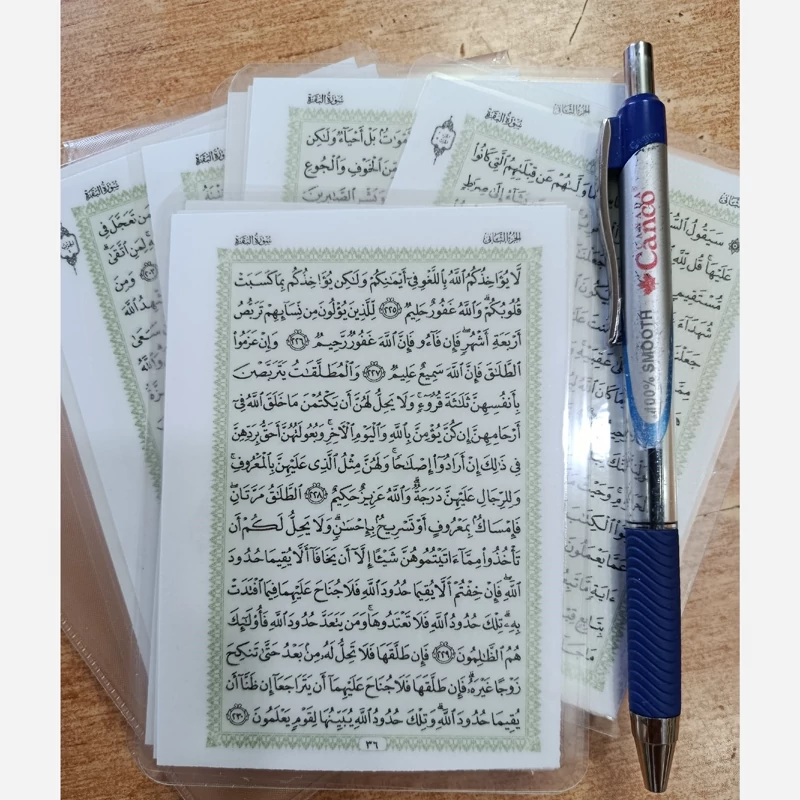 سُورَةُ البَقَرَةِ
الجزء الثاني
لَّا يُؤَاخِذُكُمُ اللَّهُ بِاللَّغْوِ فِي أَيْمَانِكُمْ وَلَٰكِن يُؤَاخِذُكُم بِمَا كَسَبَتْ
قُلُوبُكُمْ وَاللَّهُ غَفُورٌ حَلِيمٌ ٢٢٥ لِّلَّذِينَ يُؤْلُونَ مِن نِّسَائِهِمْ تَرَبُّصُ
أَرْبَعَةِ أَشْهُرٍ فَإِن فَاءُو فَإِنَّ اللَّهَ غَفُورٌ رَّحِيمٌ ٢٢٦ وَإِنْ عَزَمُوا
الطَّلَاقَ فَإِنَّ اللَّهَ سَمِيعٌ عَلِيمٌ ٢٢٧ وَالْمُطَلَّقَاتُ يَتَرَبَّصْنَ
بِأَنفُسِهِنَّ ثَلَاثَةَ قُرُوءٍ وَلَا يَحِلُّ لَهُنَّ أَن يَكْتُمْنَ مَا خَلَقَ اللَّهُ فِي
أَرْحَامِهِنَّ إِن كُنَّ يُؤْمِنَّ بِاللَّهِ وَالْيَوْمِ الْآخِرِ وَبُعُولَتُهُنَّ أَحَقُّ بِرَدِّهِنَّ
فِي ذَٰلِكَ إِنْ أَرَادُوا إِصْلَاحًا وَلَهُنَّ مِثْلُ الَّذِي عَلَيْهِنَّ بِالْمَعْرُوفِ
وَلِلرِّجَالِ عَلَيْهِنَّ دَرَجَةٌ وَاللَّهُ عَزِيزٌ حَكِيمٌ ٢٢٨ الطَّلَاقُ مَرَّتَانِ
فَإِمْسَاكٌ بِمَعْرُوفٍ أَوْ تَسْرِيحٌ بِإِحْسَانٍ وَلَا يَحِلُّ لَكُمْ أَن
تَأْخُذُوا مِمَّا آتَيْتُمُوهُنَّ شَيْئًا إِلَّا أَن يَخَافَا أَلَّا يُقِيمَا حُدُودَ
اللَّهِ فَإِنْ خِفْتُمْ أَلَّا يُقِيمَا حُدُودَ اللَّهِ فَلَا جُنَاحَ عَلَيْهِمَا فِيمَا افْتَدَتْ
بِهِ تِلْكَ حُدُودُ اللَّهِ فَلَا تَعْتَدُوهَا وَمَن يَتَعَدَّ حُدُودَ اللَّهِ فَأُولَٰئِكَ
هُمُ الظَّالِمُونَ ٢٢٩ فَإِن طَلَّقَهَا فَلَا تَحِلُّ لَهُ مِن بَعْدُ حَتَّىٰ تَنكِحَ
زَوْجًا غَيْرَهُ فَإِن طَلَّقَهَا فَلَا جُنَاحَ عَلَيْهِمَا أَن يَتَرَاجَعَا إِن ظَنَّا أَن
يُقِيمَا حُدُودَ اللَّهِ وَتِلْكَ حُدُودُ اللَّهِ يُبَيِّنُهَا لِقَوْمٍ يَعْلَمُونَ ٢٣٠
٣٦
سُورَةُ البَقَرَةِ
بَلْ أَحْيَاءٌ وَلَٰكِن
الْخَوْفِ وَالْجُوعِ
الجزء الثاني
سُورَةُ البَقَرَةِ
عَن قِبْلَتِهِمُ الَّتِي كَانُوا
سُورَةُ البَقَرَةِ
سُورَةُ البَقَرَةِ
تَعَجَّلَ فِي
سَيَقُولُ
CANADA
Canco
100% SMOOTH